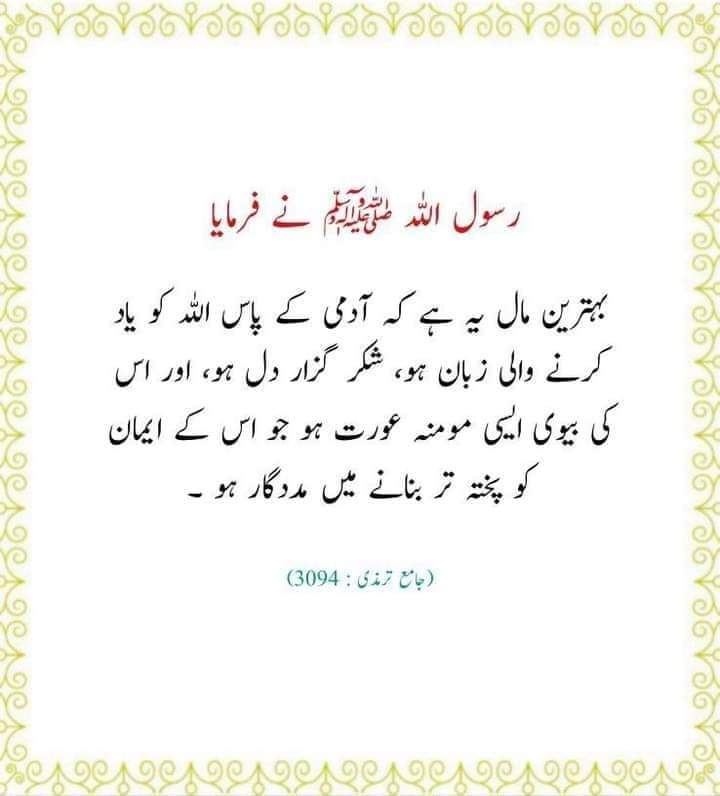 رسول اللہ ﷺ نے فرمایا
بہترین مال یہ ہے کہ آدمی کے پاس اللہ کو یاد
کرنے والی زبان ہو، شکر گزار دل ہو، اور اس
کی بیوی ایسی مومنہ عورت ہو جو اس کے ایمان
کو پختہ تر بنانے میں مددگار ہو ۔
(جامع ترمذی : 3094)